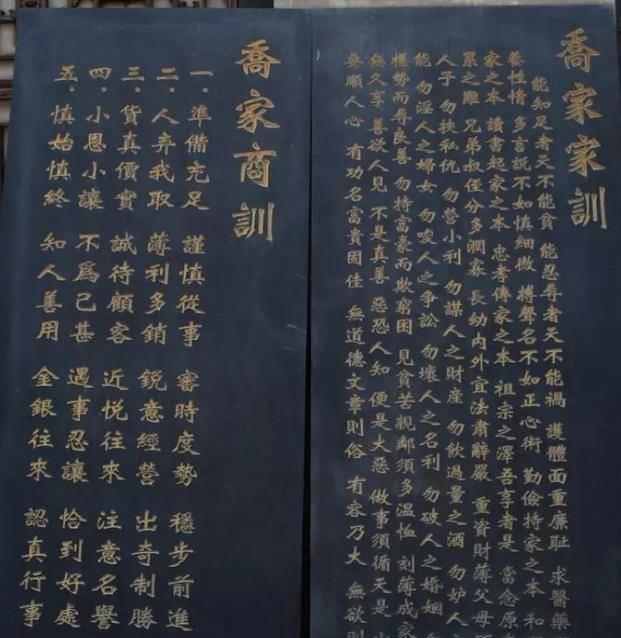 喬家家訓
能知足者天不能貧 能忍辱者天不能禍 護體面重廉恥 求醫藥
養性情 多言説不如慎細微 博聲名不如正心術 勤儉持家之本 和
家之本 讀書起家之本 忠孝傳家之本 祖宗之澤吾享者是 當念原
累之難 兄弟叔侄分多潤寡 長幼内外宜法肅辭嚴 重資財薄父母
人子 勿挾私仇 勿營小利 勿謀人之財産 勿飲過量之酒 勿妒人
能 勿淫人之婦女 勿唆人之爭訟 勿壞人之名利 勿破人之婚姻
權勢而辱良善 勿恃富豪而欺窮困 見貧苦親鄰須多溫恤 刻薄成家
無久享 善欲人見 不是真善 惡恐人知 便是大惡 做事須循天是
要順人心 有功名富貴固佳 無道德文章則俗 有容乃大 無欲則
喬家商訓
一.準備充足 謹慎從事 審時度勢 穩步前進
二.人棄我取 薄利多銷 銳意經營 出奇制勝
三.貨真價實 誠待顧客 近悦往來 注意名譽
四.小恩小讓 不爲己甚 遇事忍讓 恰到好處
五.慎始慎終 知人善用 金銀往來 認真行事